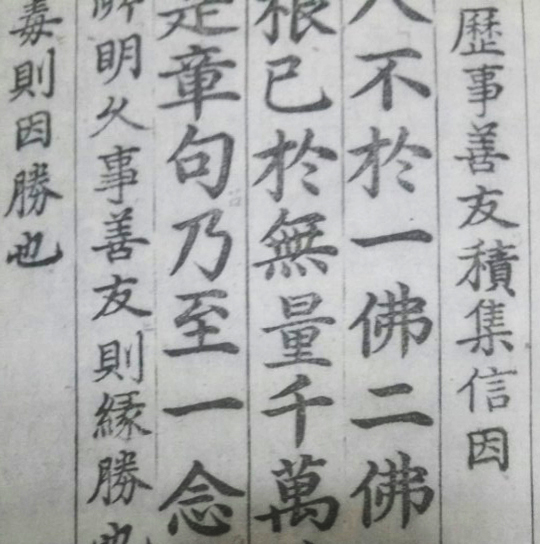 歷事善友積集信因
人不於一佛二佛
根已於無量千萬
是章句乃至一念
解明久事善友則緣勝也
毒則因勝也